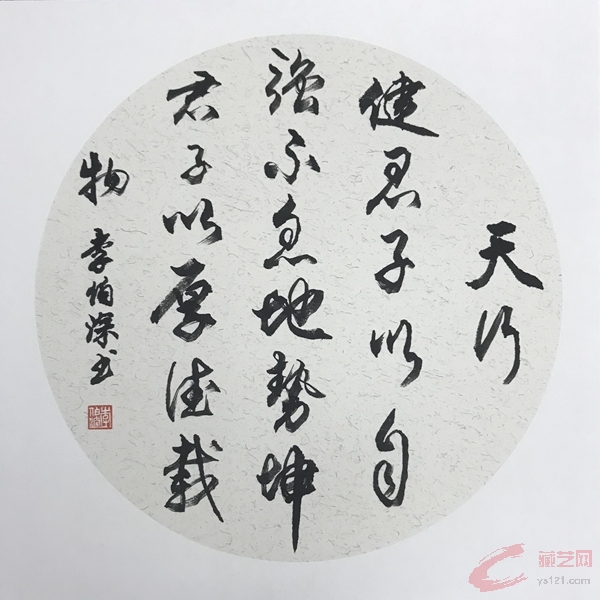 天行
健君子以自
強不息地勢坤
君子以厚德載
物 李伯深书
藏艺网
ys121.com